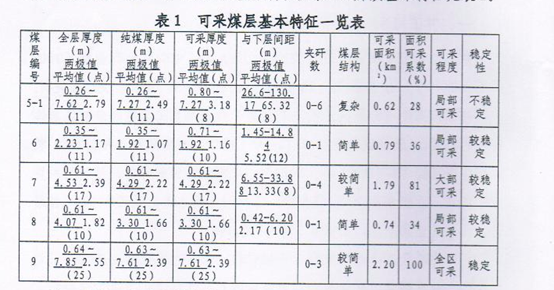 表1 可采煤层基本特征一览表
煤层编号 全层厚度(m) 两极值 平均值(点) 纯煤厚度(m) 两极值 平均值(点) 可采厚度(m) 两极值 平均值(点) 与下层间距(m) 两极值 平均值(点) 夹矸数 煤层结构 可采面积(km²) 面积可采系数(%) 可采程度 稳定性
5-1 0.26~7.62 2.79(11) 0.26~7.27 2.49(11) 0.80~7.27 3.18(8) 26.6-130.17 65.32(8) 0-6 复杂 0.62 28 局部可采 不稳定
6 0.35~2.23 1.17(11) 0.35~1.92 1.07(11) 0.71~1.92 1.16(10) 1.45-14.84 5.52(12) 0-1 简单 0.79 36 局部可采 较稳定
7 0.61~4.53 2.39(17) 0.61~4.29 2.22(17) 0.61~4.29 2.22(17) 6.55-33.88 13.33(8) 0-4 较简单 1.79 81 大部可采 较稳定
8 0.61~4.07 1.82(10) 0.61~3.30 1.66(10) 0.61~3.30 1.66(10) 0.42-6.20 2.17(10) 0-1 简单 0.74 34 局部可采 较稳定
9 0.64~7.85 2.55(25) 0.63~7.61 2.39(25) 0.63~7.61 2.39(25) 0-3 较简单 2.20 100 全区可采 稳定